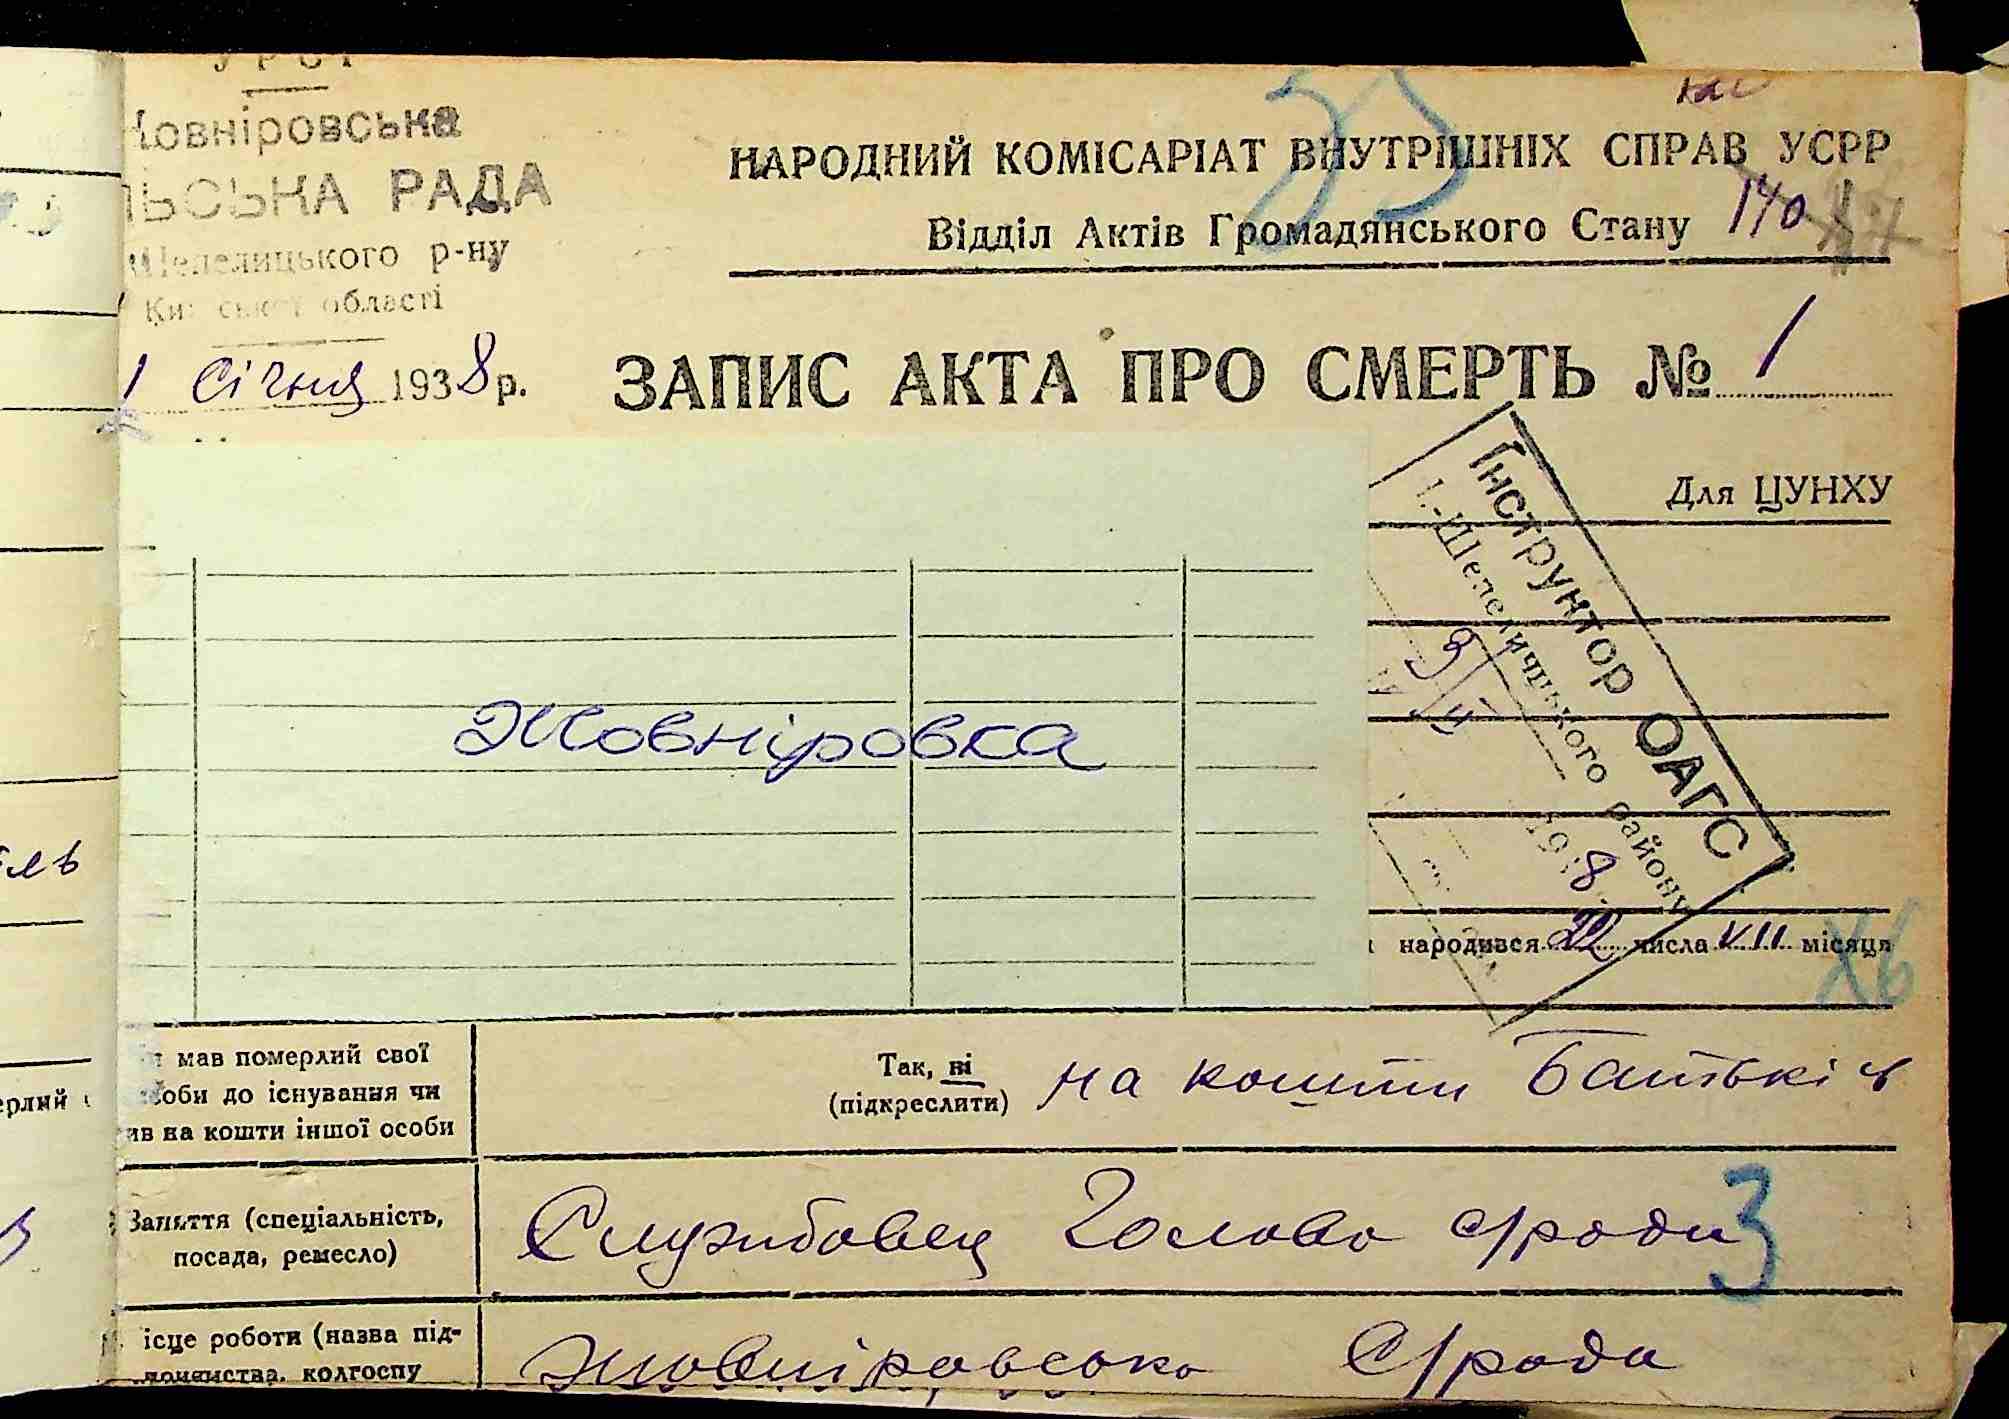 УРСР
Жовніровська
СІЛЬСЬКА РАДА
Шепелицького р-ну
Київської області
33
НАРОДНИЙ КОМІСАРІАТ ВНУТРІШНІХ СПРАВ УСРР
Відділ Актів Громадянського Стану 140
1 Січня 1938 р. ЗАПИС АКТА ПРО СМЕРТЬ № 1
Для ЦУНХУ
Інструктор ОАГС
Шепелицького району
Жовніровка
народився 22 числа VII місяця
мав померлий свої
оби до існування чи
ив на кошти іншої особи
Так, ні
(підкреслити)
на кошти Батьків
Заняття (спеціальність,
посада, ремесло)
Службовец Голова с/ради
3
ісце роботи (назва під-
колгоспу
Жовніровська С/рада